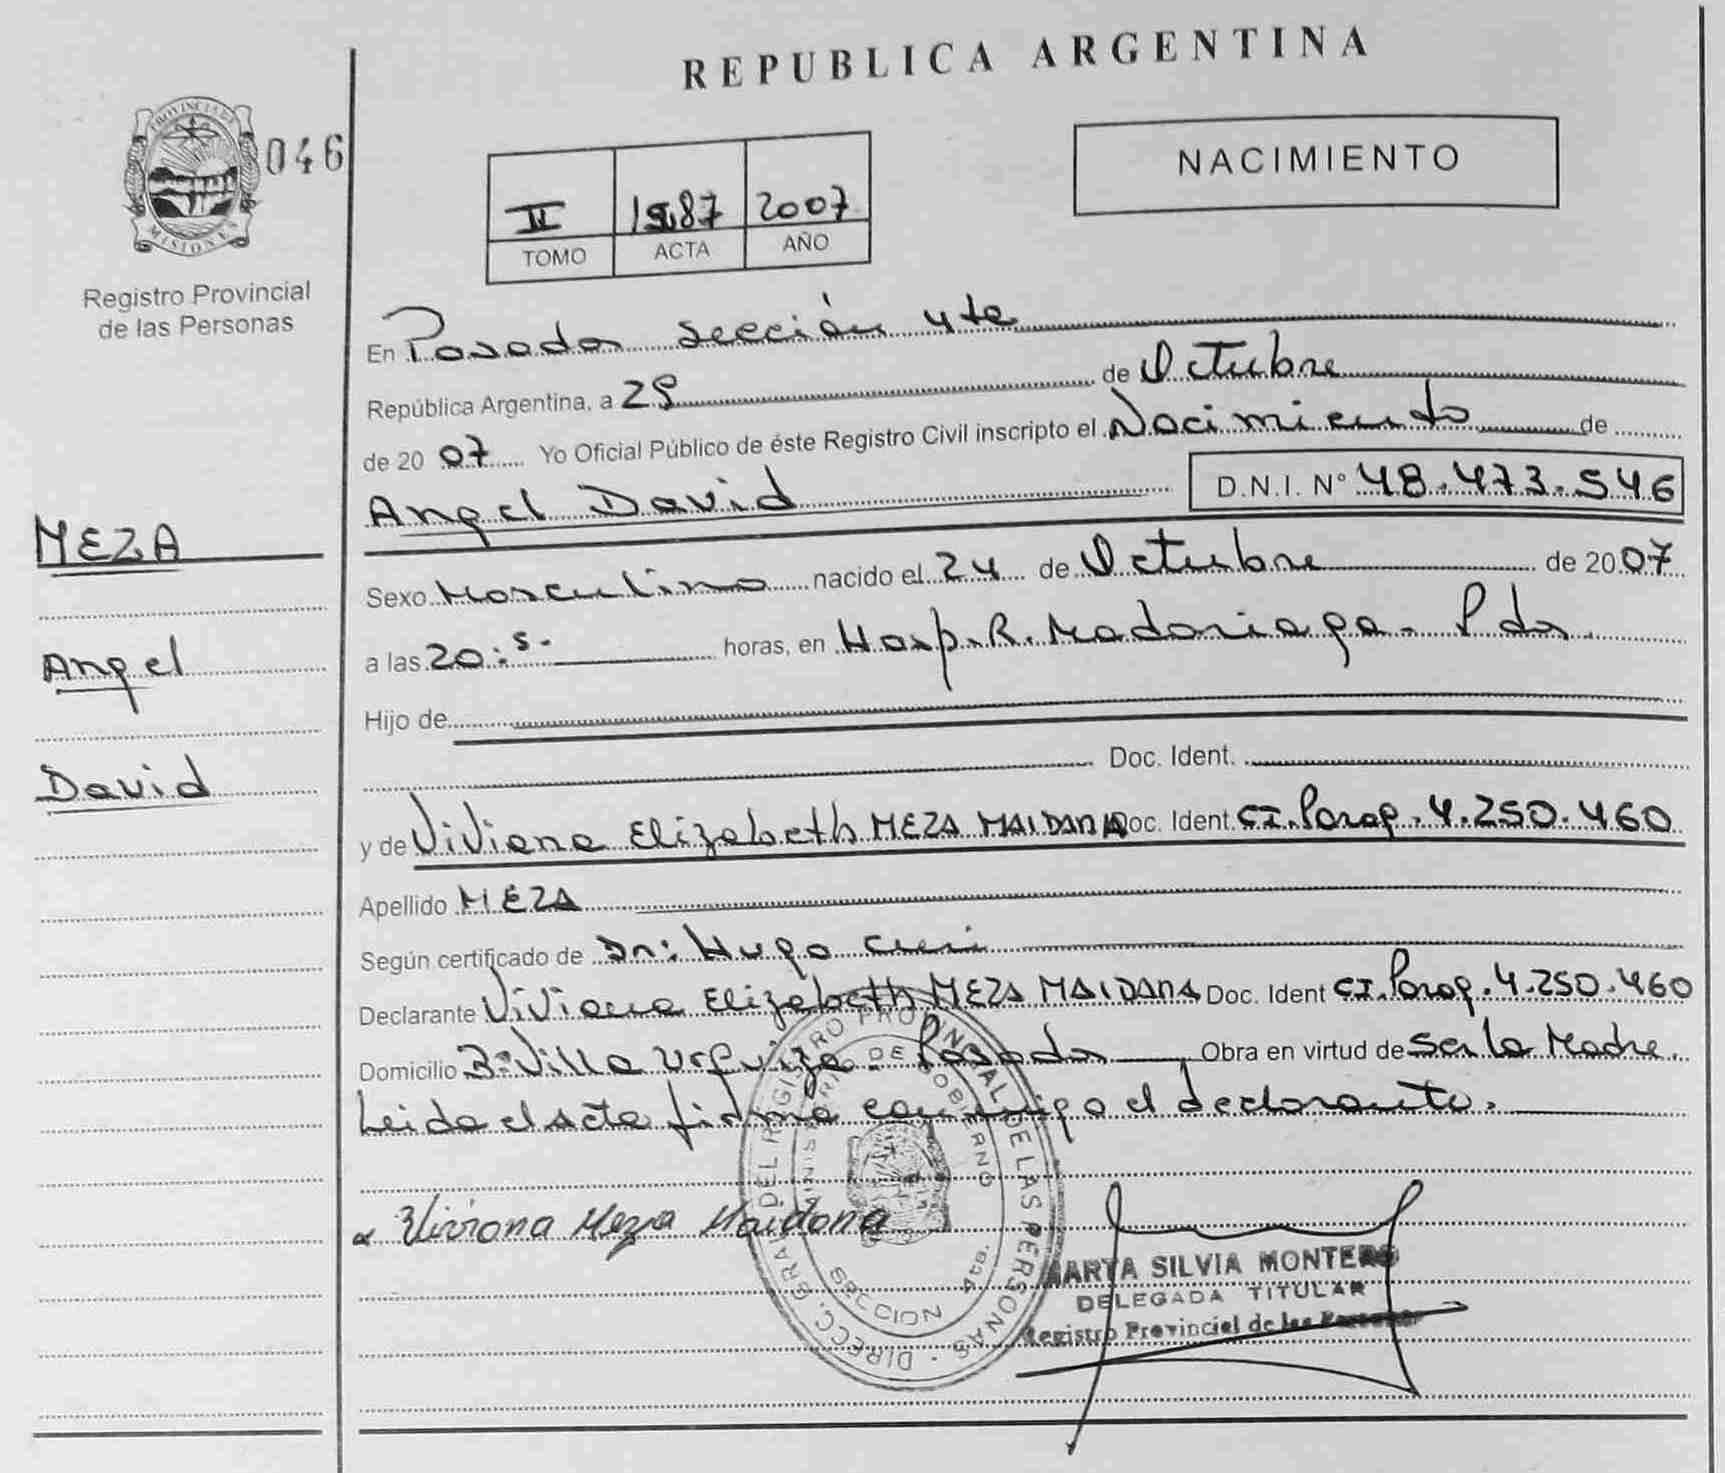 REPUBLICA ARGENTINA
PROVINCIA DE MISIONES
046
Registro Provincial
de las Personas
II 1987 2007
TOMO ACTA AÑO
NACIMIENTO
MEZA
Angel
David
En Posadas sección 4ta
República Argentina, a 29 de Octubre
de 2007 Yo Oficial Público de éste Registro Civil inscripto el Nacimiento de
Angel David D.N.I. N° 48.473.546
Sexo Masculino nacido el 24 de Octubre de 2007
a las 20:5- horas, en Hosp. R. Madariaga - Pdas.
Hijo de
Doc. Ident.
y de Viviana Elizabeth MEZA MAIDANA Doc. Ident. CI. Parag. 4.250.460
Apellido MEZA
Según certificado de Dr: Hugo
Declarante Viviana Elizabeth MEZA MAIDANA Doc. Ident CI. Parag. 4.250.460
Domicilio B= Villa Urquiza - Posadas Obra en virtud de Ser la Madre.
Leida el acta firma conmigo el declarante.
Viviana Meza Maidana
DIRECC. GRAL. DEL REGISTRO PROVINCIAL DE LAS PERSONAS
MINISTERIO DE GOBIERNO
SECCION 4ta.
MARTA SILVIA MONTERO
DELEGADA TITULAR
Registro Provincial de las Personas